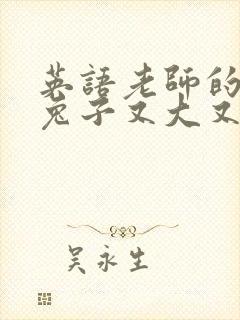 英語老師的
兔子又大又
吴永生